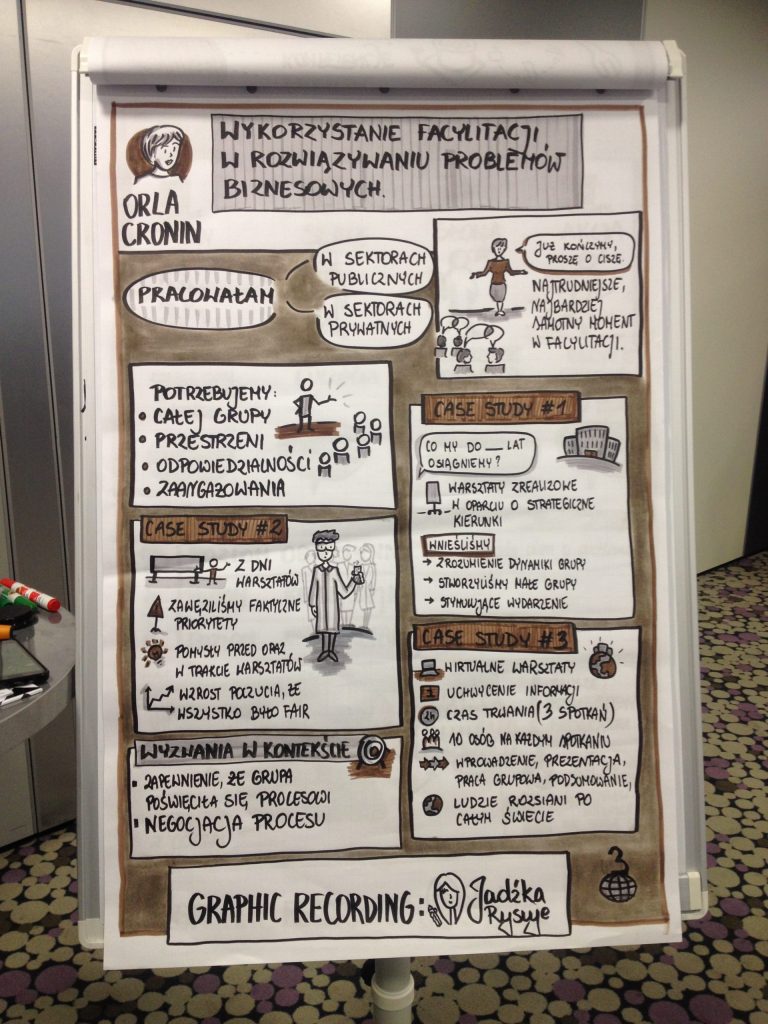 WYKORZYSTANIE FACYLITACJI
W ROZWIĄZYWANIU PROBLEMÓW
BIZNESOWYCH.
ORLA
CRONIN
PRACOWAŁAM
W SEKTORACH
PUBLICZNYCH
W SEKTORACH
PRYWATNYCH
JUŻ KOŃCZYMY,
PROSZĘ O CISZĘ.
NAJTRUDNIEJSZE,
NAJBARDZIEJ
SAMOTNY MOMENT
W FACYLITACJI.
POTRZEBUJEMY:
• CAŁEJ GRUPY
• PRZESTRZENI
• ODPOWIEDZIALNOŚCI
• ZAANGAŻOWANIA
CASE STUDY #1
CO MY DO ___ LAT
OSIĄGNIEMY?
WARSZTATY ZREALIZOWE
W OPARCIU O STRATEGICZNE
KIERUNKI
WNIEŚLIŚMY
→ ZROZUMIENIE DYNAMIKI GRUPY
→ STWORZYLIŚMY MAŁE GRUPY
→ STYMULUJĄCE WYDARZENIE
CASE STUDY #2
2 DNI
WARSZTATÓW
ZAWĘZILIŚMY FAKTYCZNE
PRIORYTETY
POMYSŁY PRZED ORAZ
W TRAKCIE WARSZTATÓW
WZROST POCZUCIA, ŻE
WSZYSTKO BYŁO FAIR
CASE STUDY #3
WIRTUALNE WARSZTATY
UCHWYCENIE INFORMACJI
2h CZAS TRWANIA (3 SPOTKAŃ)
10 OSÓB NA KAŻDYM SPOTKANIU
WPROWADZENIE, PREZENTACJA,
PRACA GRUPOWA, PODSUMOWANIE,
LUDZIE ROZSIANI PO
CAŁYM ŚWIECIE
WYZWANIA W KONTEKŚCIE
• ZAPEWNIENIE, ŻE GRUPA
POŚWIĘCIŁA SIĘ PROCESOWI
• NEGOCJACJA PROCESU
GRAPHIC RECORDING: Jadźka
Rysuje